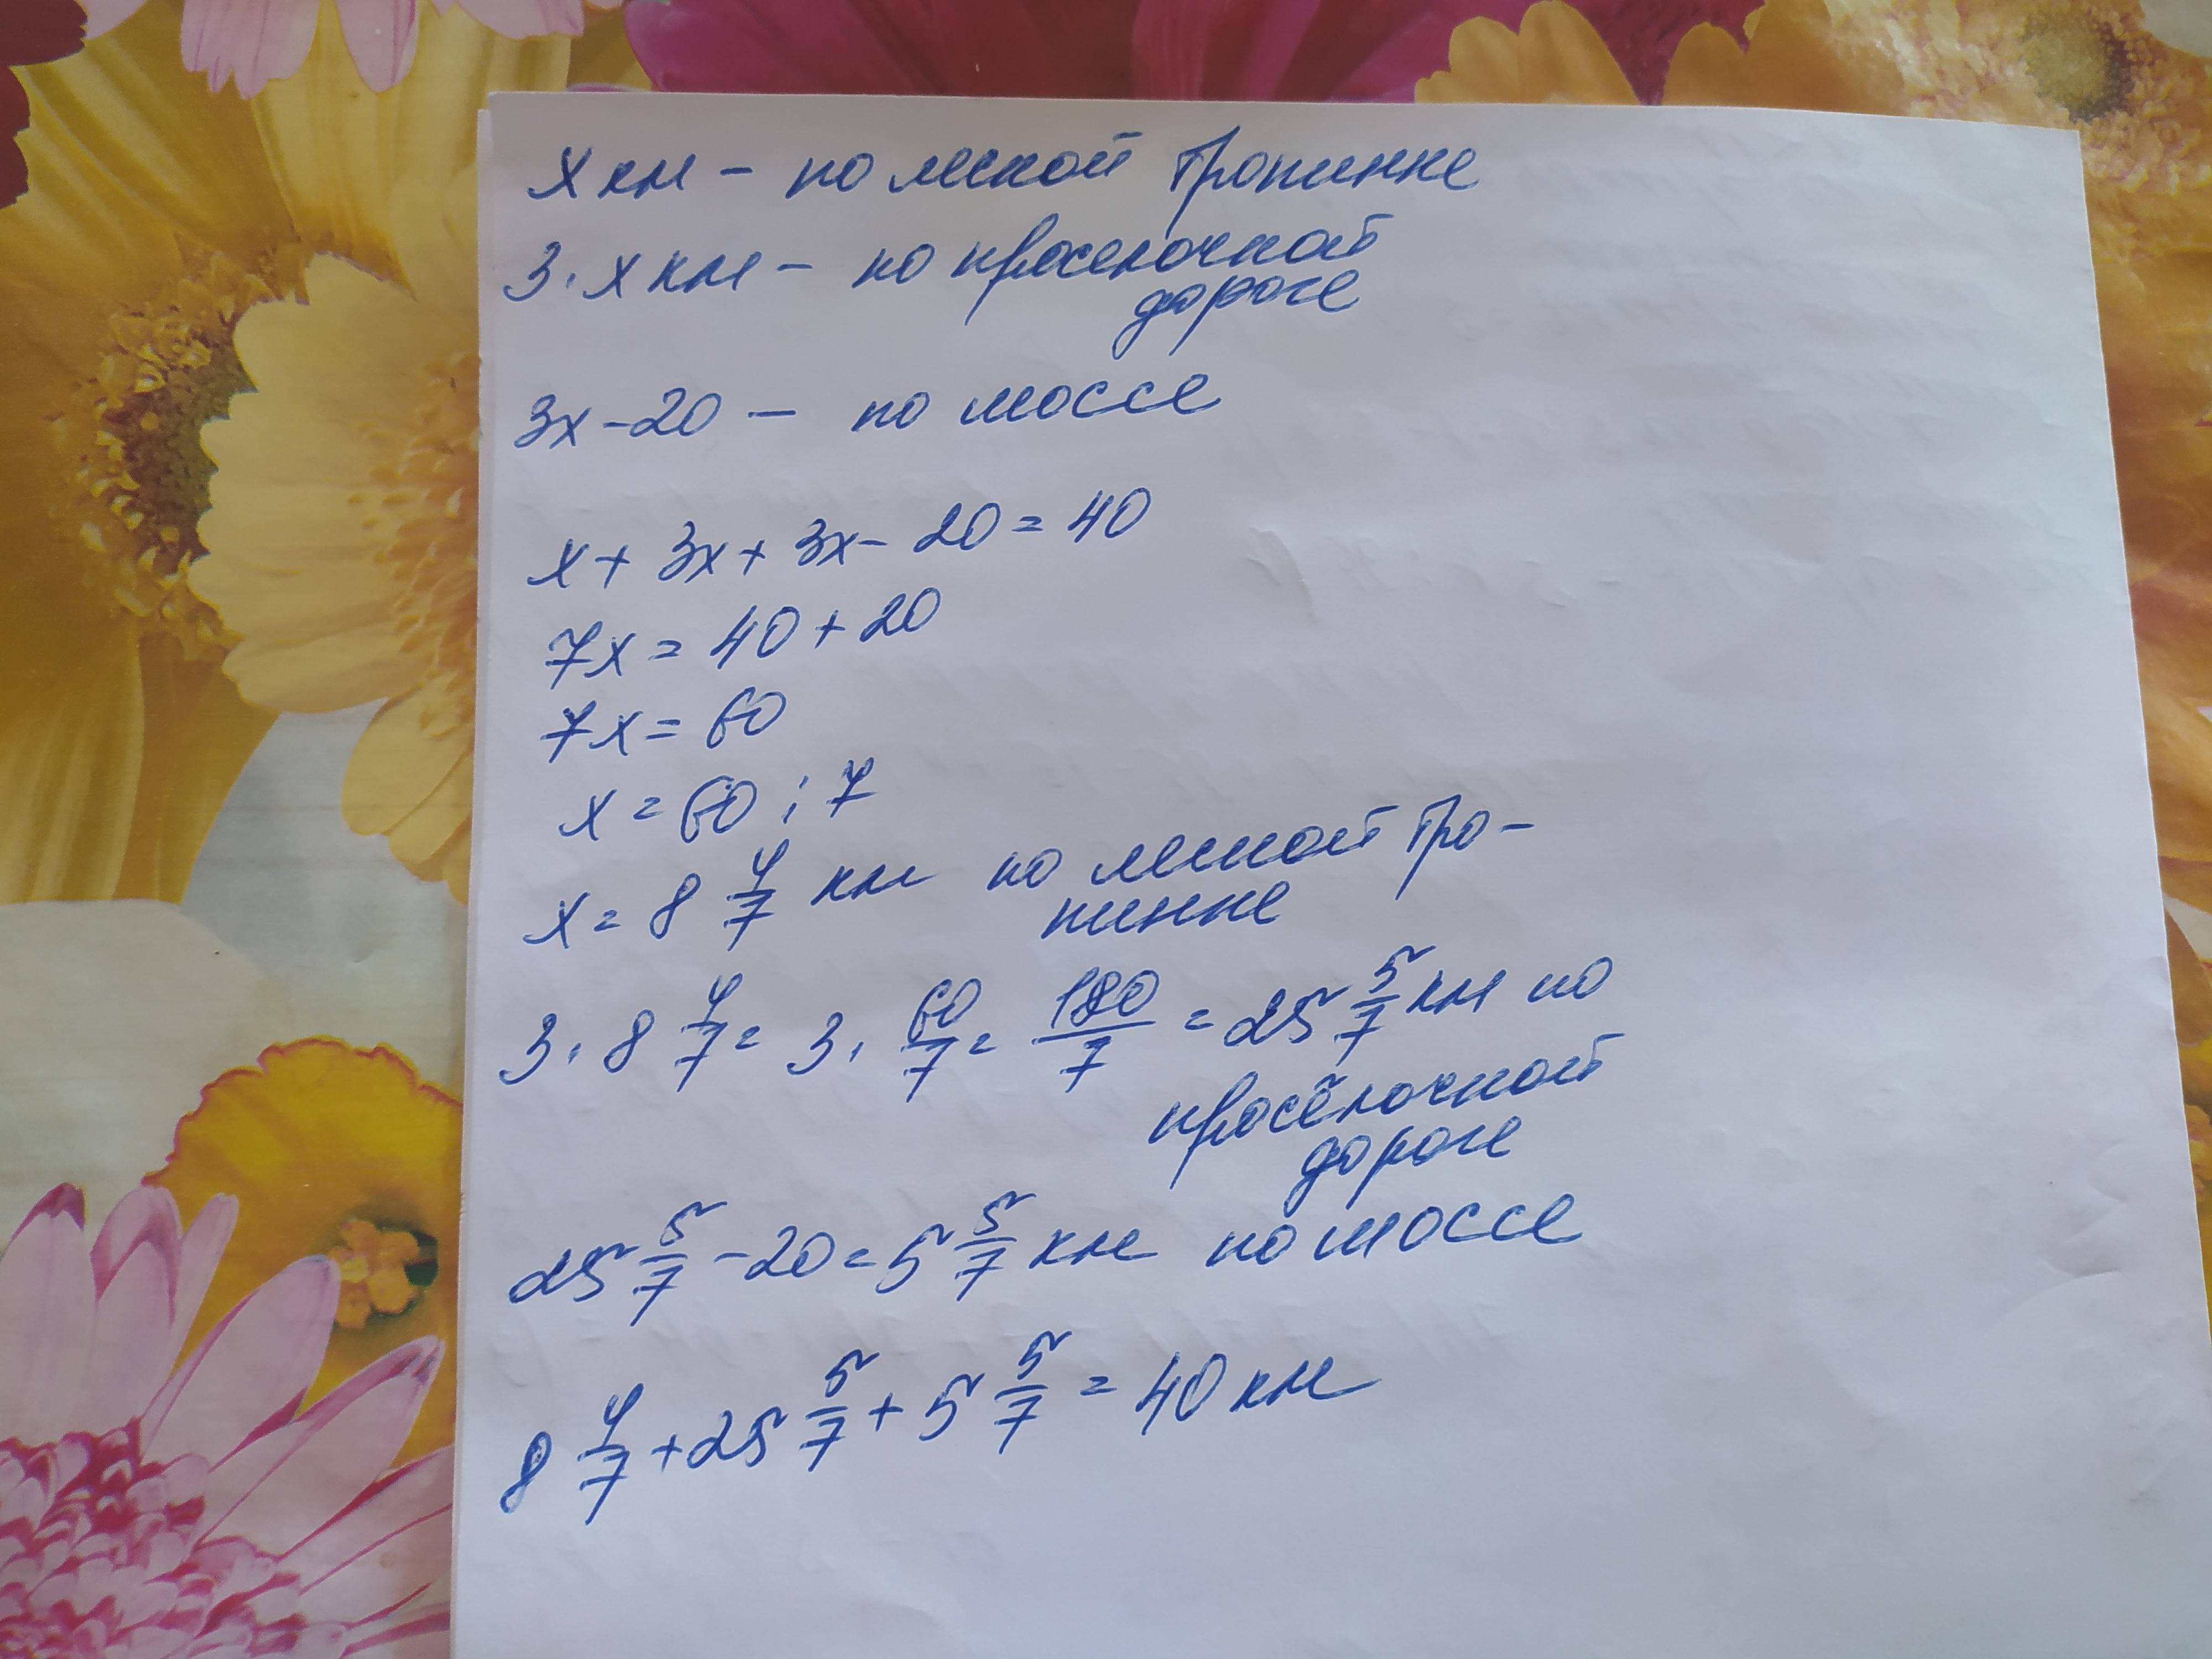 x км – по лесной тропинке
3·x км – по проселочной
дороге
3x – 20 – по шоссе
x + 3x + 3x – 20 = 40
7x = 40 + 20
7x = 60
x = 60 : 7
x = 8 4/7 км по лесной тро-
пинке
3 · 8 4/7 = 3 · 60/7 = 180/7 = 25 5/7 км по
просёлочной
дороге
25 5/7 – 20 = 5 5/7 км по шоссе
8 4/7 + 25 5/7 + 5 5/7 = 40 км